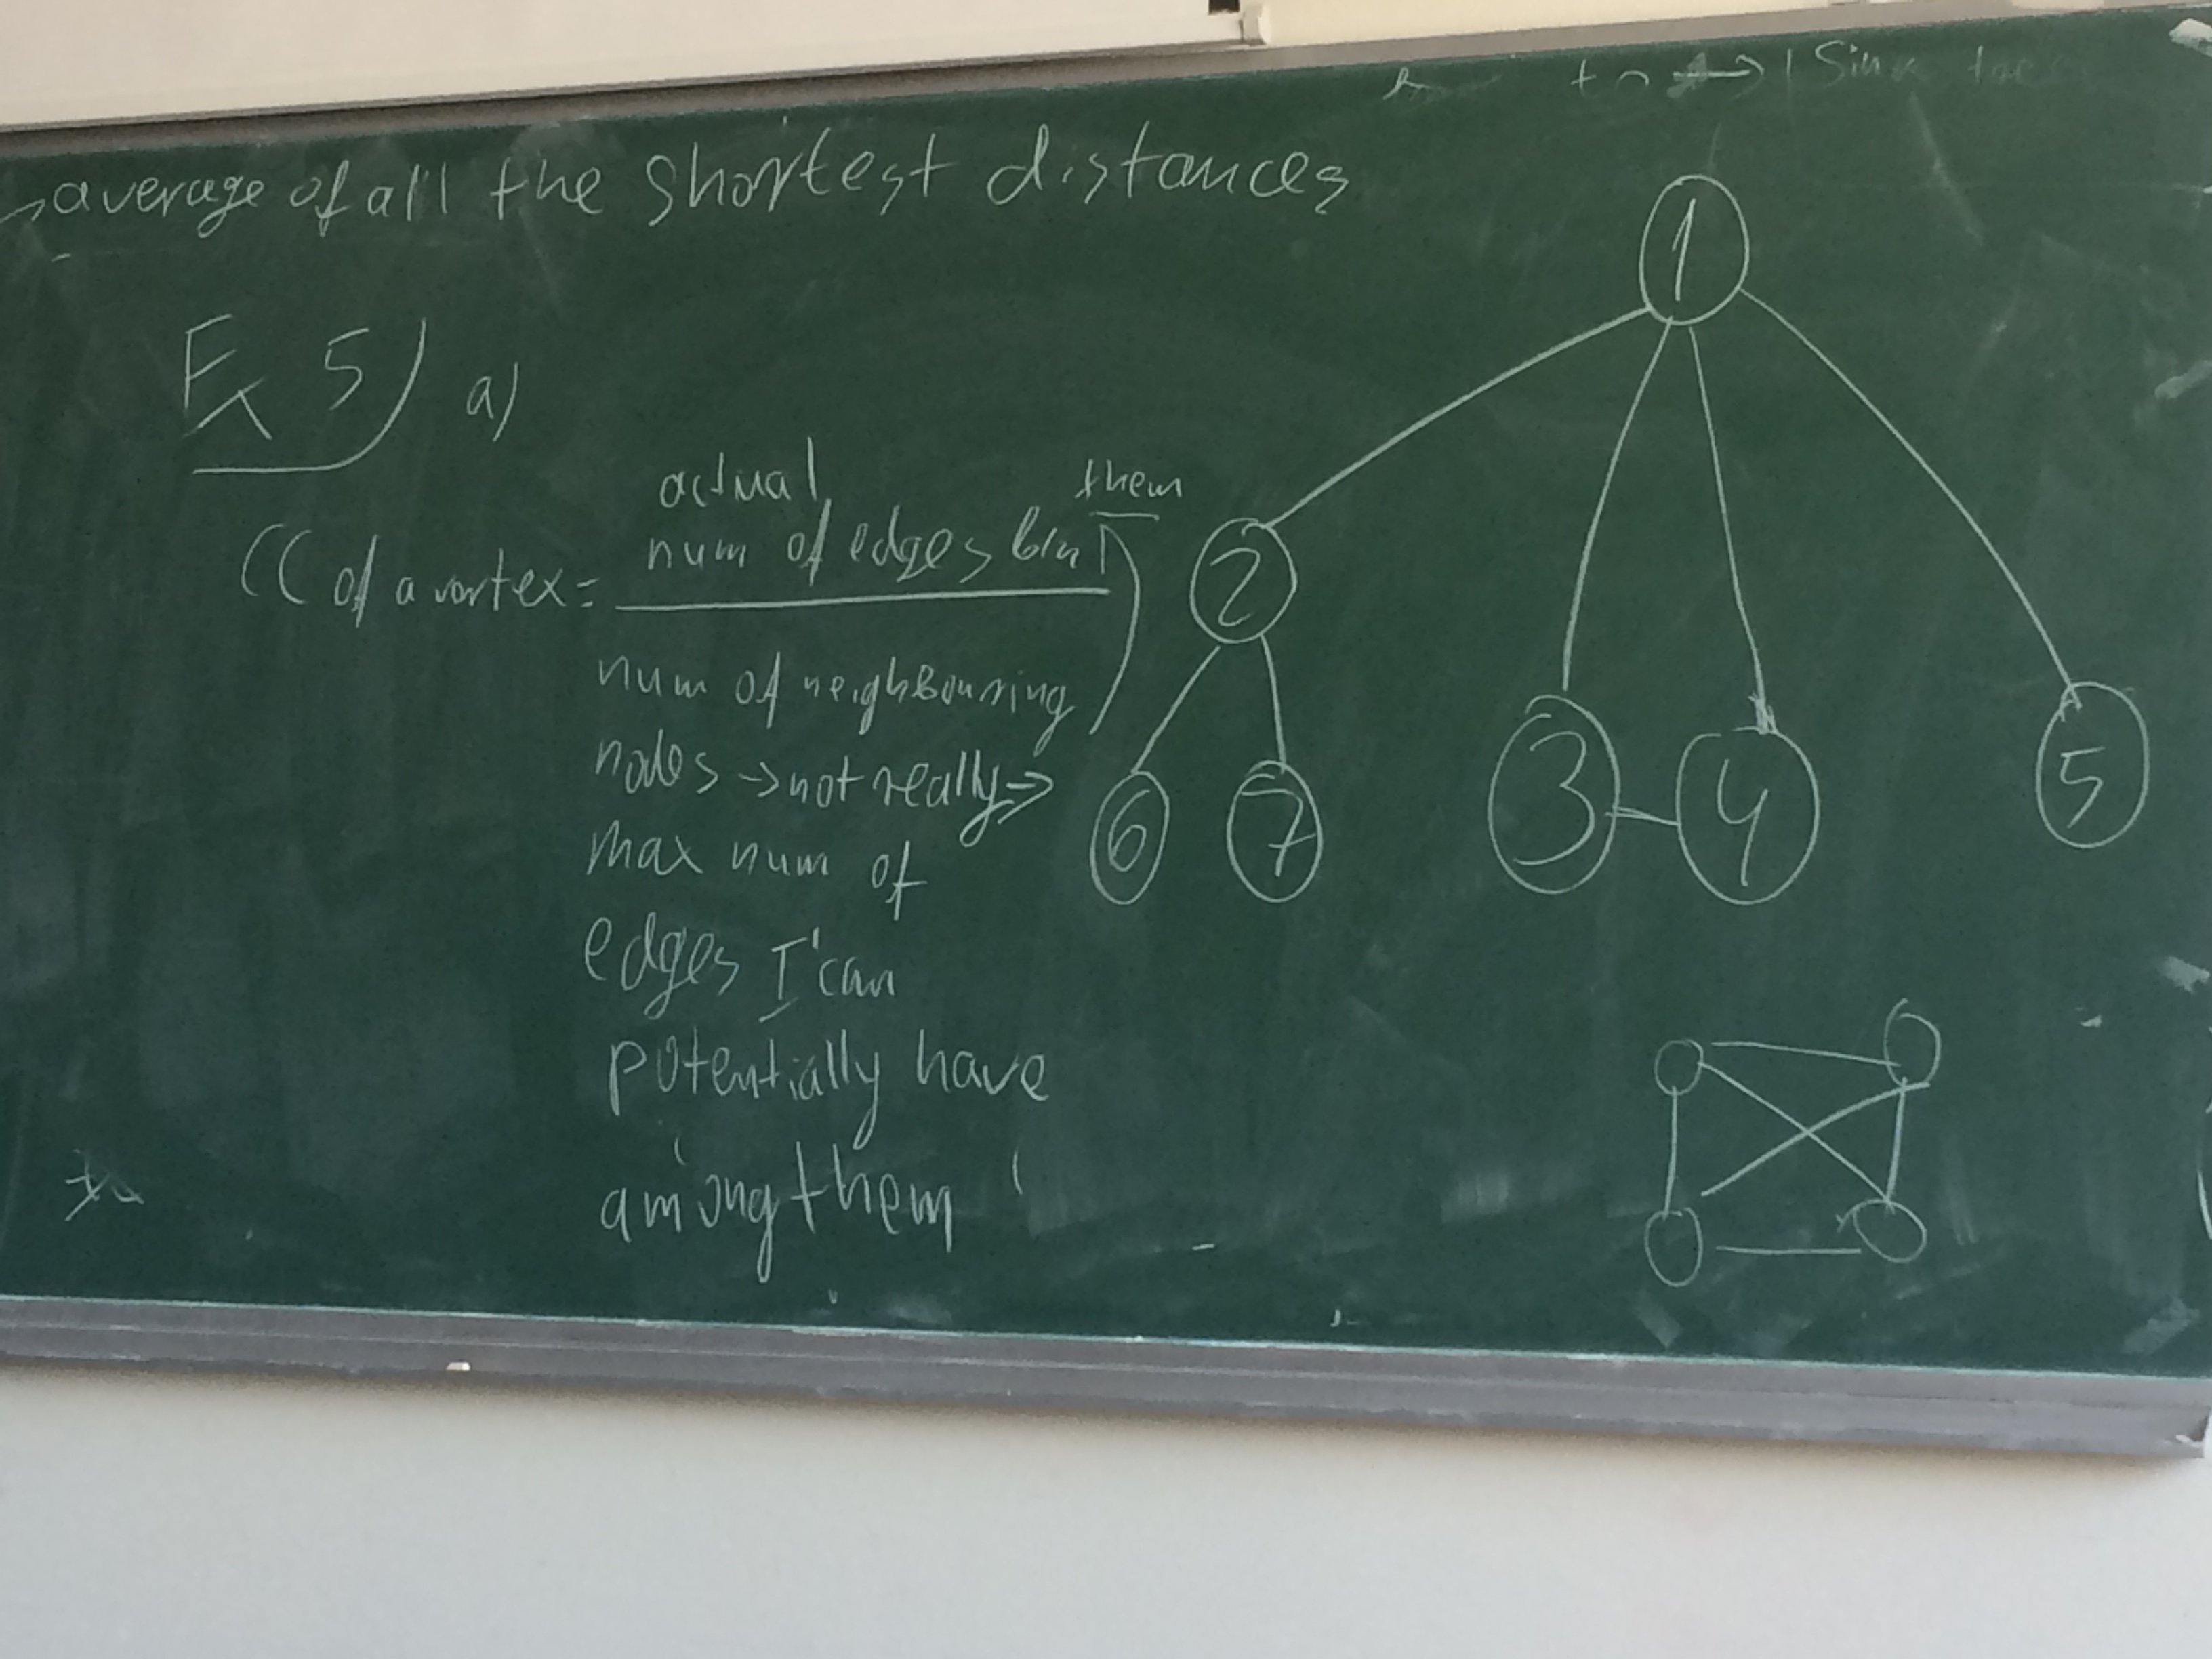 average of all the shortest distances
Ex 5) a)
actual
them
CC of a vortex =
num of edges btn
num of neighbouring
nodes → not really →
max num of
edges I can
potentially have
among them
1
2
3
4
5
6
7